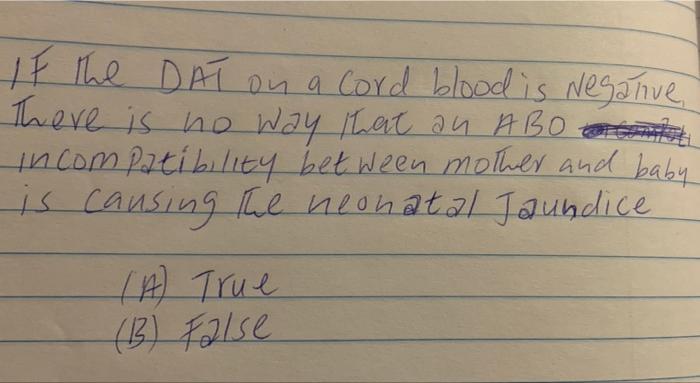 IF the DAT on a Cord blood is Negative,
There is no way that an ABO
incompatibility between mother and baby
is causing the neonatal Jaundice
(A) True
(B) False